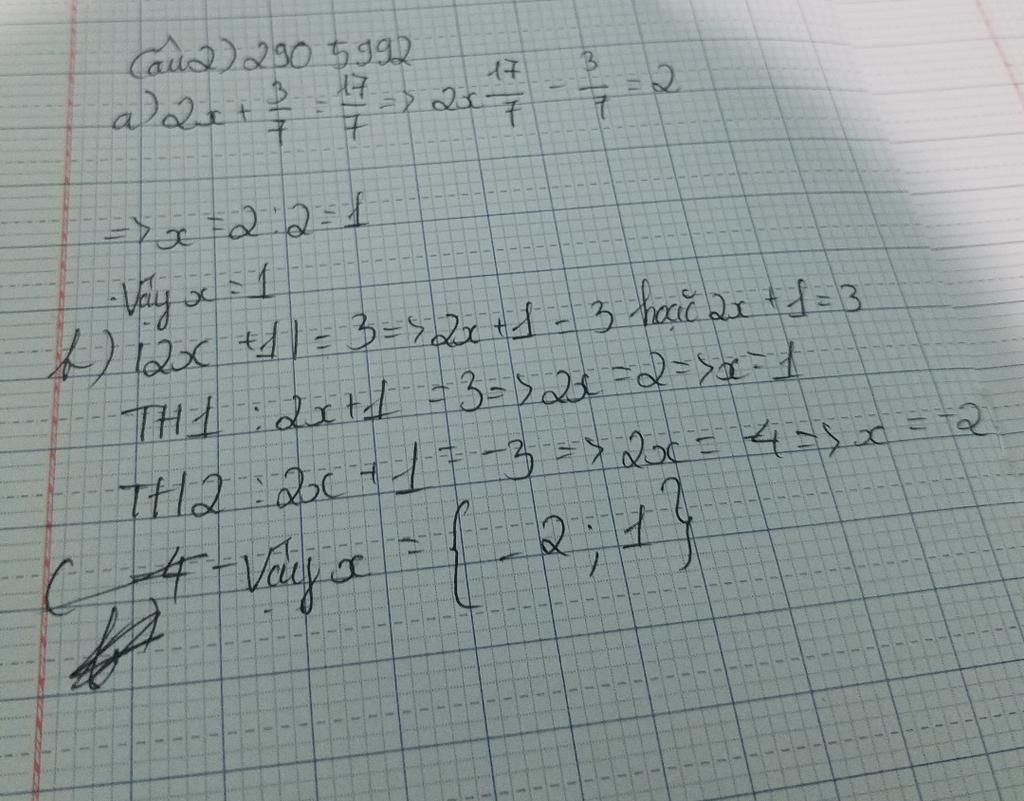 Câu 2) 290 5992
a) 2x + 3/7 = 17/7 => 2x 17/7 - 3/7 = 2
=> x = 2 : 2 = 1
Vậy x = 1
b) |2x + 1| = 3 => 2x + 1 = 3 hoặc 2x + 1 = 3
TH1 : 2x + 1 = 3 => 2x = 2 => x = 1
TH2 : 2x + 1 = -3 => 2x = -4 => x = -2
- Vậy x = { -2 ; 1 }